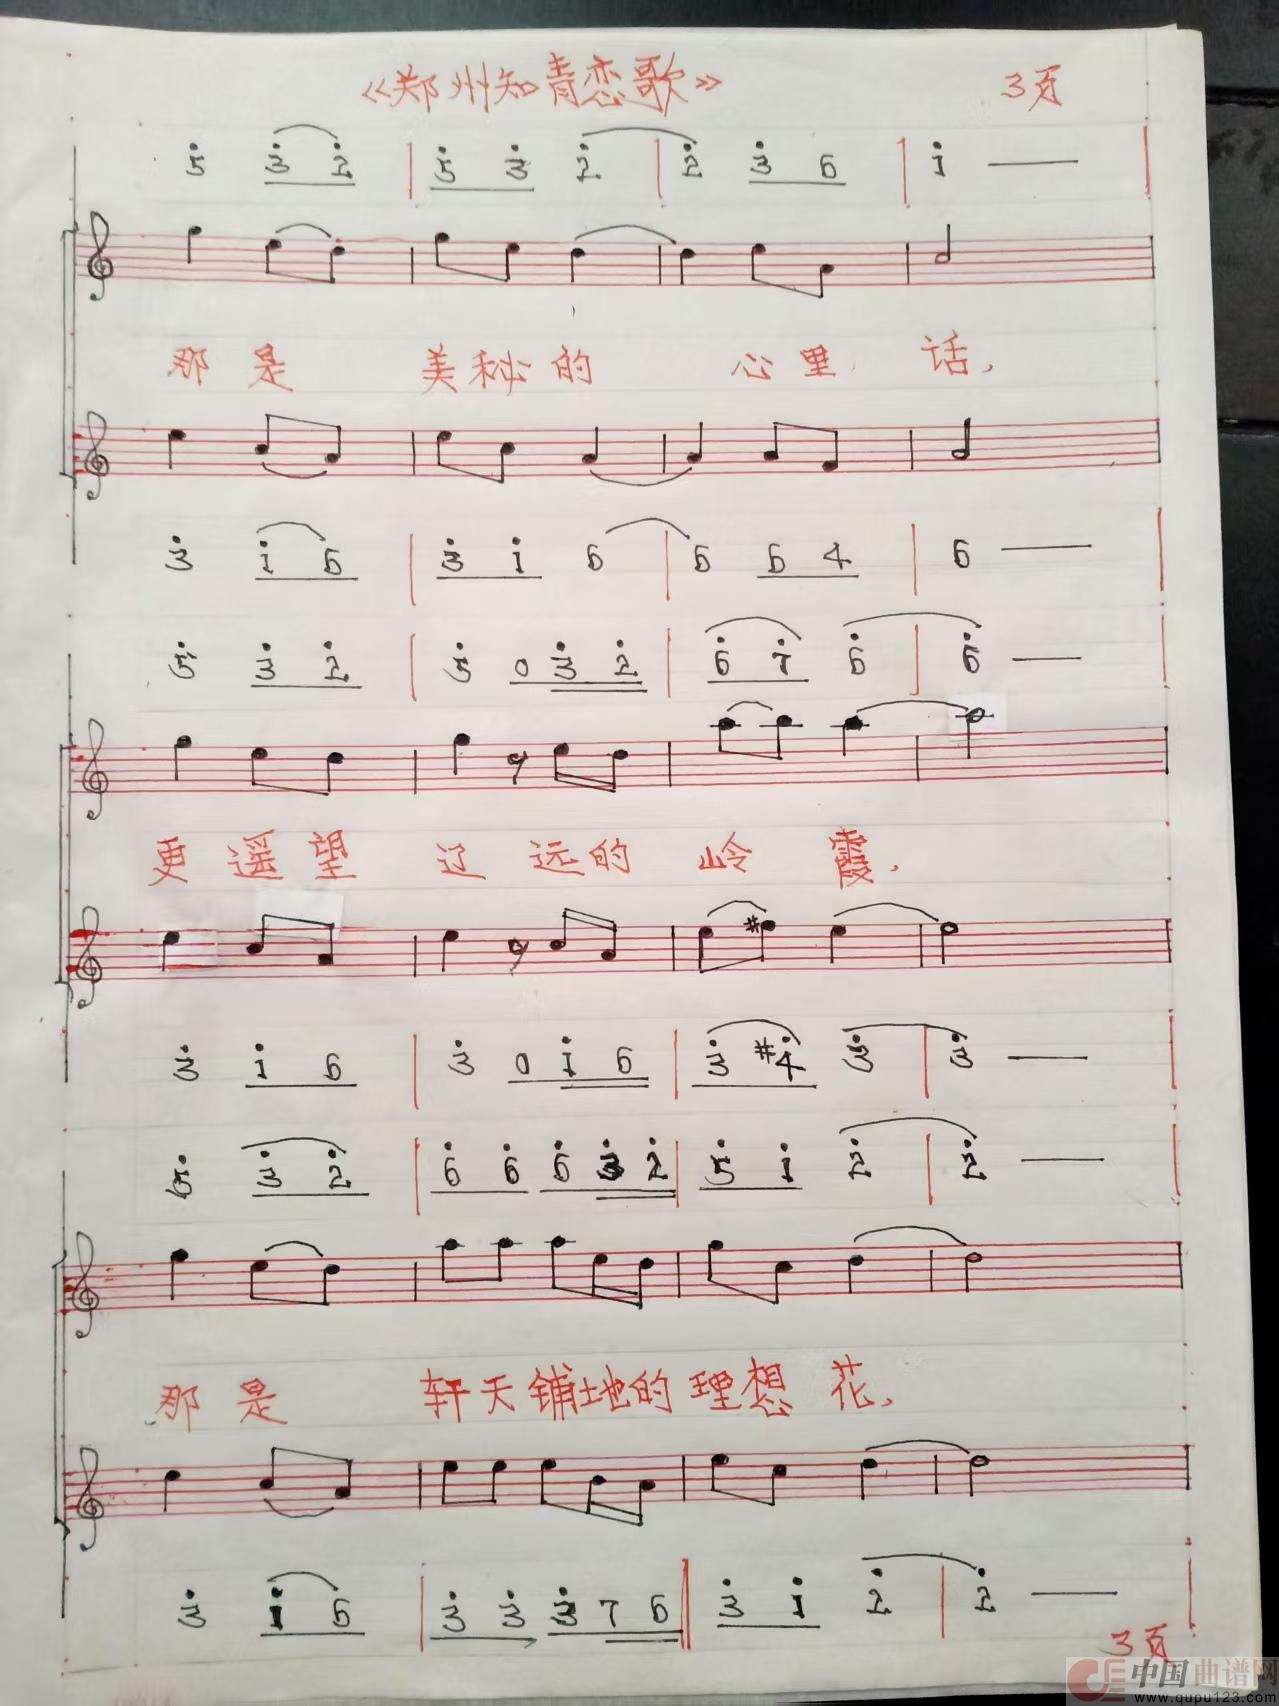 《郑州知青恋歌》 3页
5 3 2 | 5 3 2 | 2 3 6 | 1 —
那是 美秘的 心里 话,
3 1 6 | 3 1 6 | 6 6 4 | 6 —
5 3 2 | 5 0 3 2 | 6 7 6 | 6 —
更遥望 辽远的 岭 霞,
3 1 6 | 3 0 1 6 | 3 #4 3 | 3 —
5 3 2 | 6 6 6 3 2 | 5 1 2 | 2 —
那是 轩天铺地的理想 花,
3 1 6 | 3 3 3 7 6 | 3 1 2 | 2 —
3页
中国曲谱网
www.qupu123.com